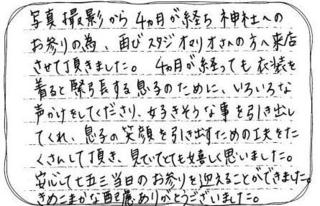 写真撮影から4ヵ月が経ち神社への
お参りの為、再びスタジオマリオさんの方へ来店
させて頂きました。4ヵ月が経っても衣装を
着ると緊張する息子のために、いろいろな
声かけをしてくださり、好きそうな事を引き出し
てくれ、息子の笑顔を引き出すための工夫をた
くさんして頂き、見ていてとても嬉しく思いました。
安心して七五三当日のお参りを迎えることができました。
きめこまかな配慮ありがとうございました。